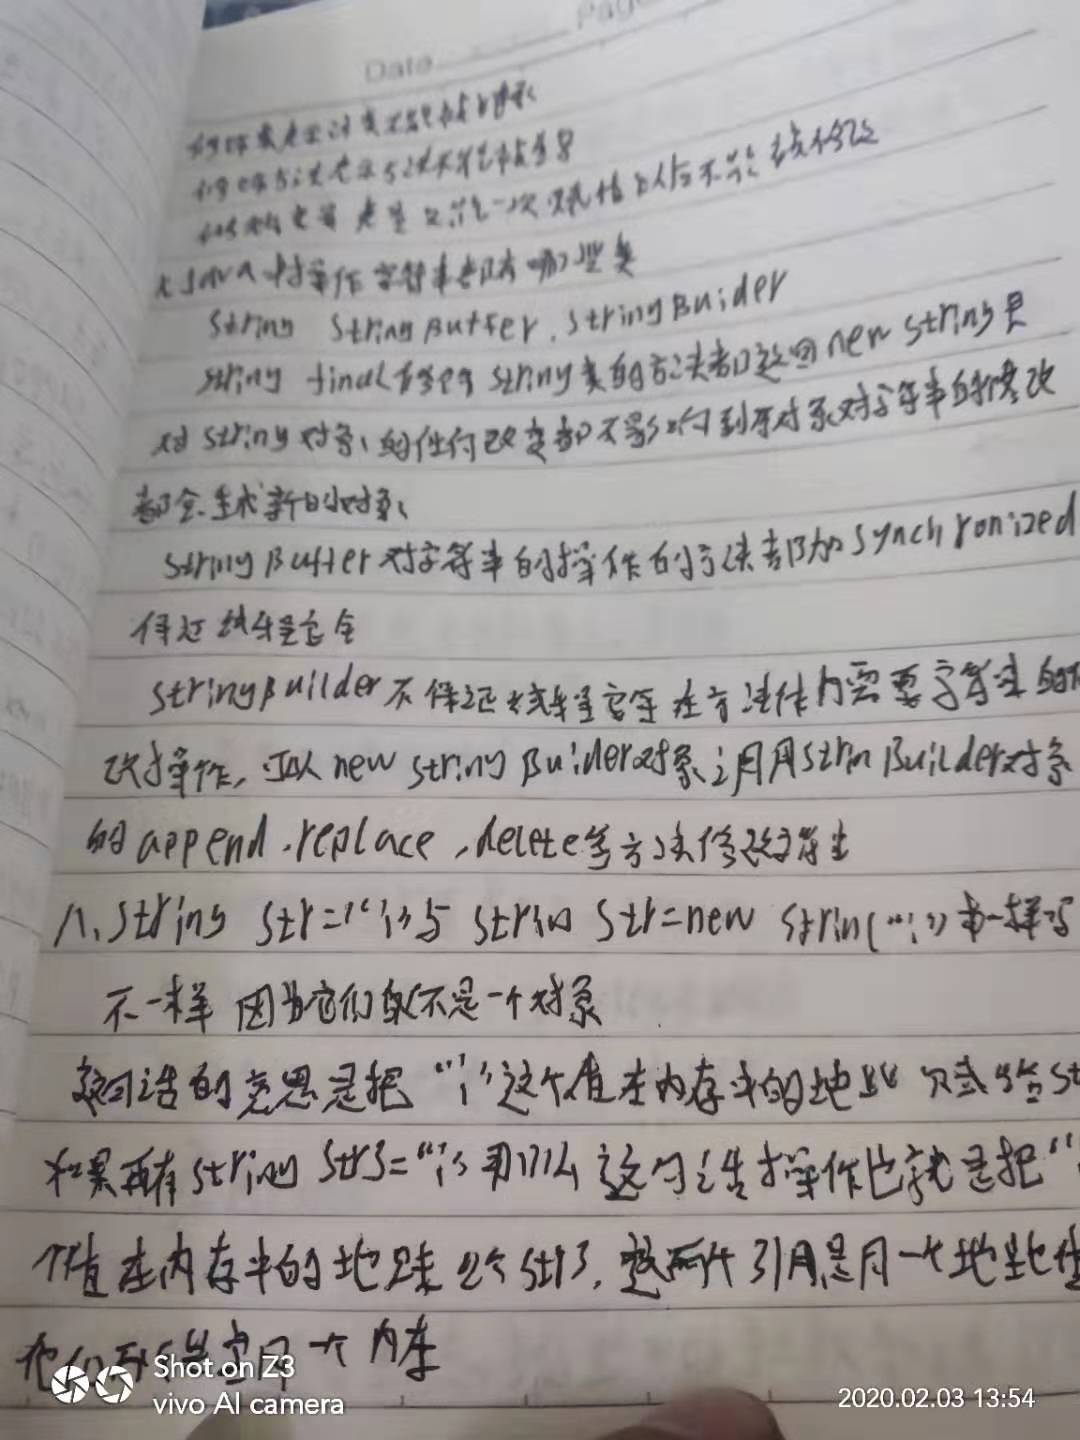 Date Page
修饰类表示该类不能被继承
修饰方法表示方法不能被重写
修饰变量 表 只能一次赋值以后不能被修改
七Java中操作字符串都有哪些类
String StringButter, StringBuider
String final修饰 String类的方法都返回new String 即
对String对象的任何改变都不影响到原对象对字符串的修改
都会生成新的对象
StringButter对字符串的操作的方法都加synchronized
保证线程安全
StringBuilder不保证线程安全 在方法体内需要字符串的修
改操作,可以new StringBuider对象调用StrinBuilder对象
的append.replace,delete等方法修改字符串
八、String Str="i"与 String Str=new Strin("i")一样吗
不一样 因为它们的不是一个对象
这句话的意思是把"i"这个值在内存中的地址赋给St
如果再有String Str3="i"那么这句话操作也就是把"
个值在内存中的地址给Str3,这两个引用是同一个地址值
他们 共用一个内存
Shot on Z3
vivo AI camera
2020.02.03 13:54